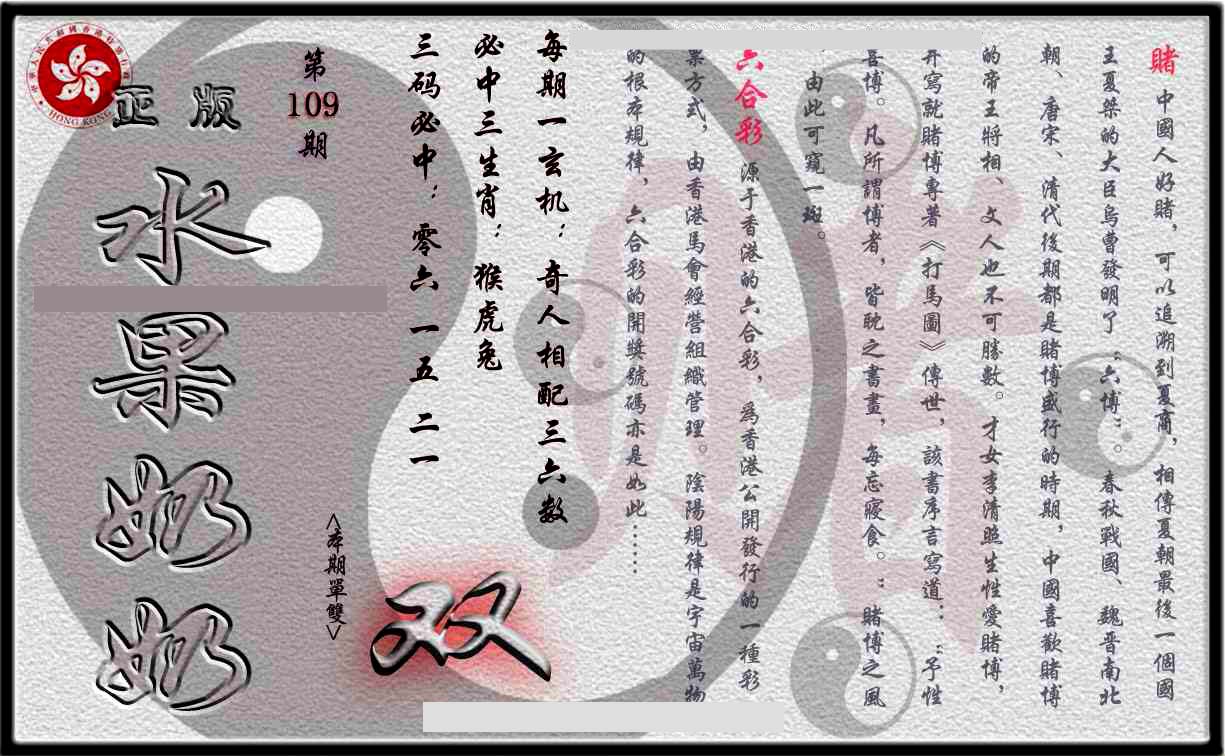 賭 中國人好賭，可以追溯到夏商，相傳夏朝最後一個國
王夏桀的大臣烏曹發明了“六博”。春秋戰國、魏晋南北
朝、唐宋、清代後期都是賭博盛行的時期，中國喜歡賭博
的帝王將相、文人也不可勝數。才女李清照生性愛賭博，
并寫就賭博專著《打馬圖》傳世，該書序言寫道：“予性
喜博。凡所謂博者，皆耽之書畫，每忘寢食。：賭博之風
由此可窺一斑。
六合彩 源于香港的六合彩，爲香港公開發行的一種彩
票方式，由香港馬會經營組織管理。陰陽規律是宇宙萬物
的根本規律，六合彩的開獎號碼亦是如此……
每期一玄机：奇人相配三六数
必中三生肖：猴虎兔
三码必中：零六 一五 二一
双
第
109
期
<本期單雙>
正版
水果奶奶
HONG KONG